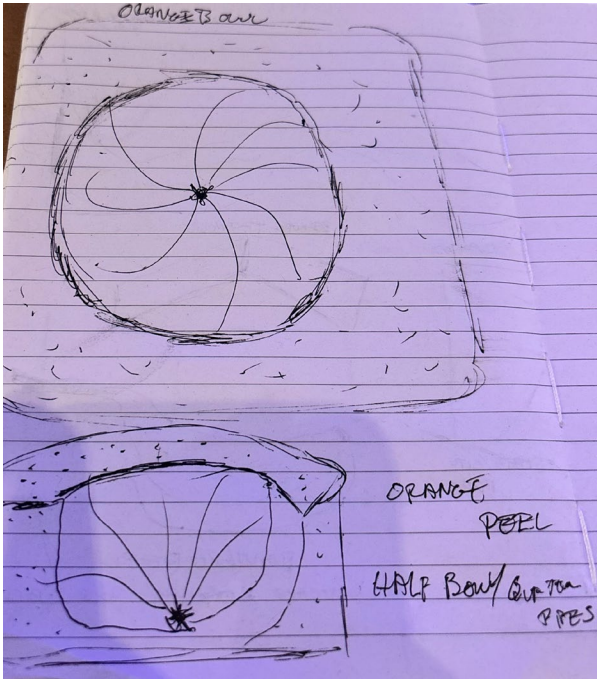 ORANGE Bowl
ORANGE
PEEL
HALF Bowl/
PIPES